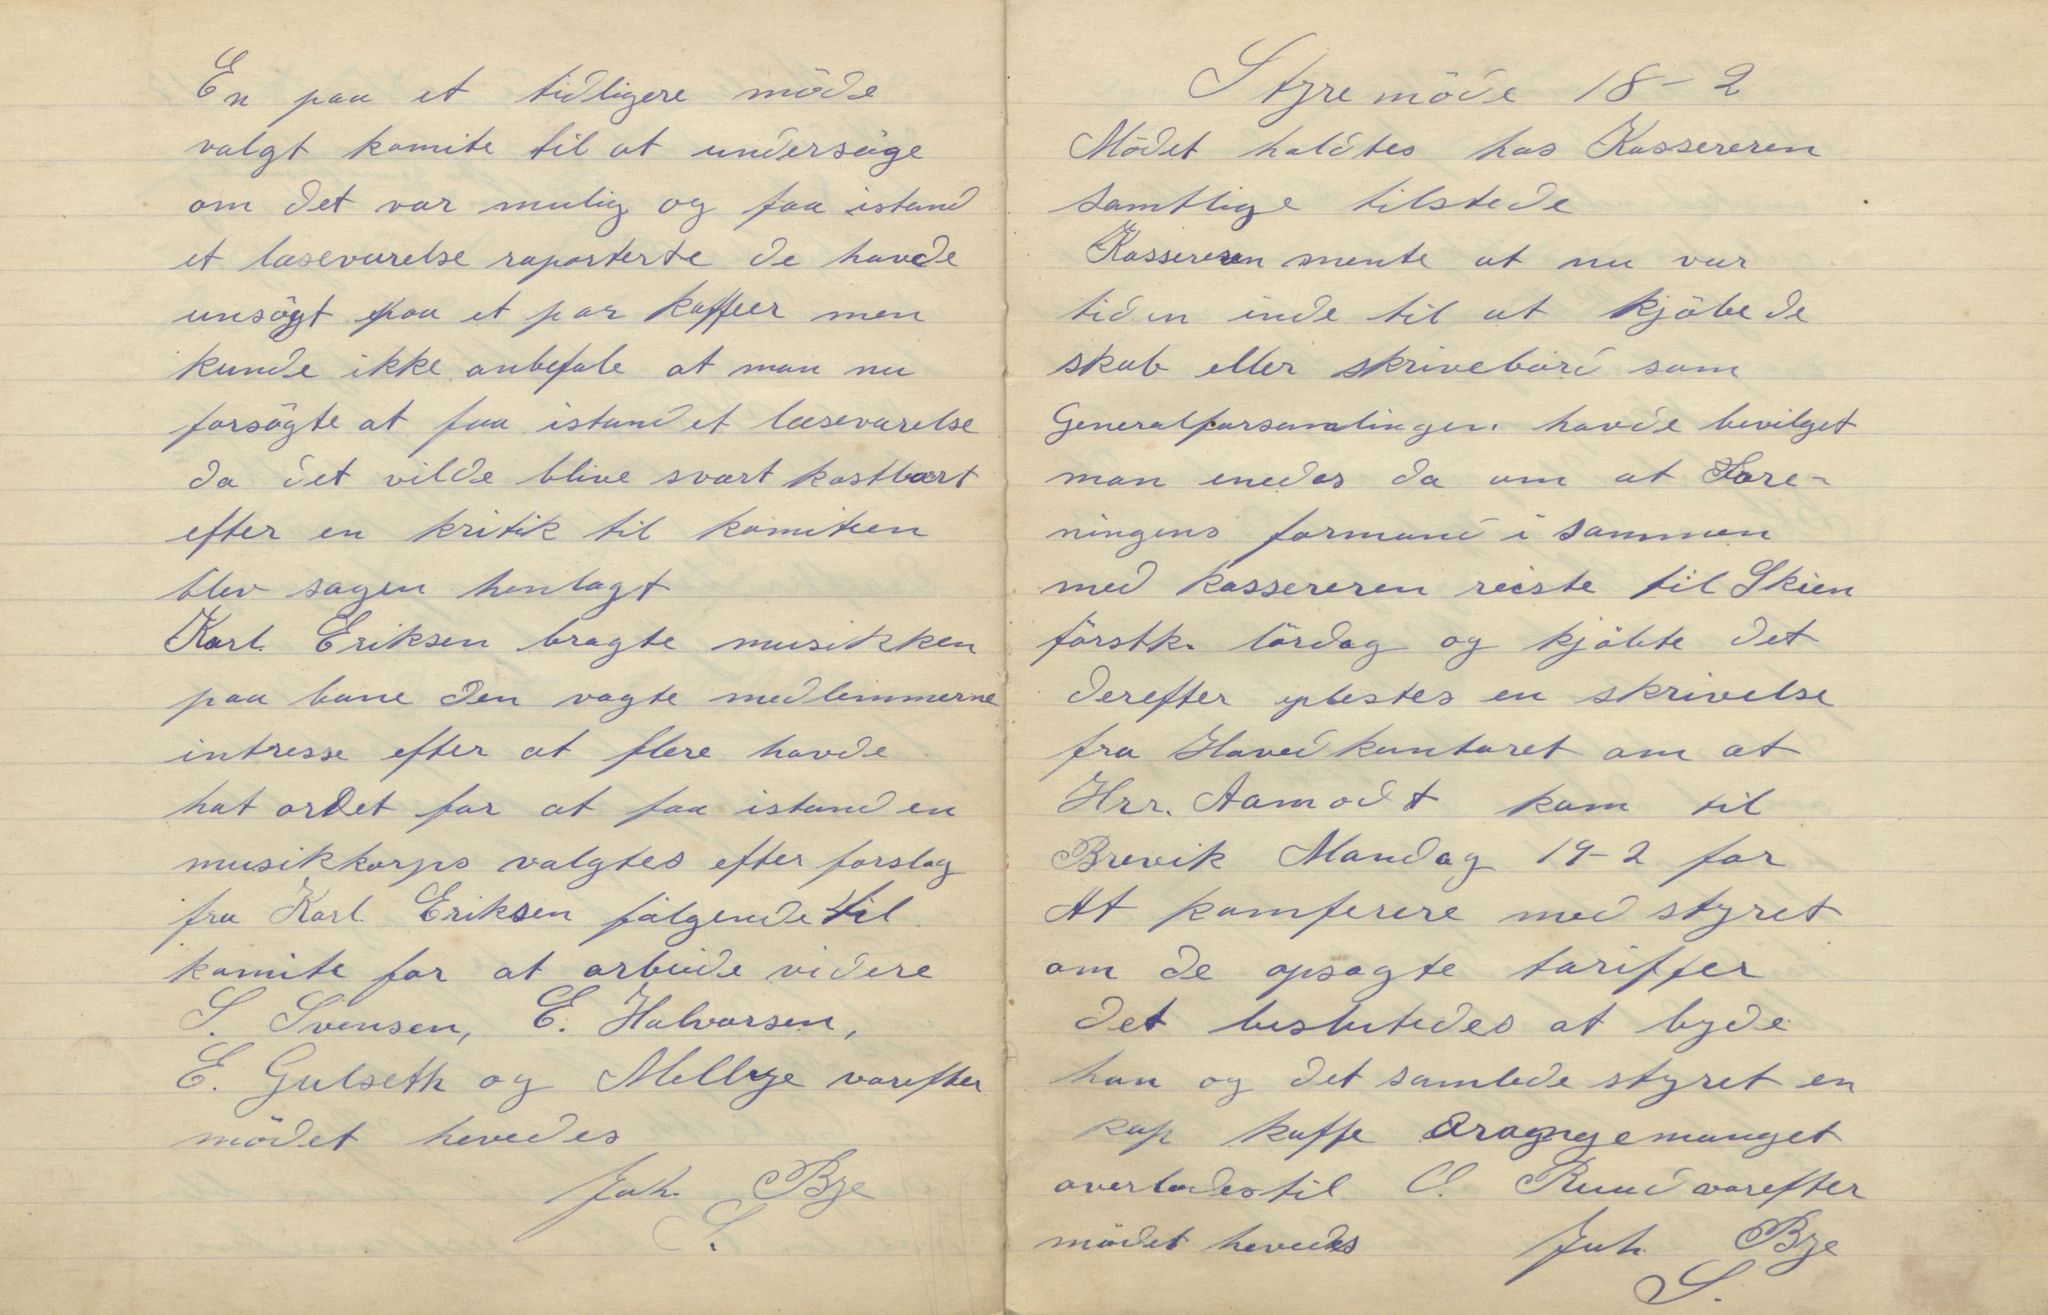 En paa et tidligere möde
valgt komite til at undersøge
om det var mulig og faa istand
et læseværelse raporterte de havde
unsögt paa et par kaffeer men
kunde ikke anbefale at man nu
forsögte at faa istand et læsevarelse
da det vilde blive svært kostbart
efter en kritik til komiteen
blev sagen henlagt
Karl. Eriksen bragte musikken
paa bane den vagte medlemmerne
intresse efter at flere havde
hat ordet for at faa istand en
musikkorps valgtes efter forslag
fra Karl Eriksen fölgende til
komite for at arbeide videre
S. Svensen, E. Halvorsen,
E. Gulseth og Mellbye vorefter
mödet hevedes
Joh. Bye
S.
Styremöde 18-2
Mödet holdtes hos Kassereren
samtlige tilstede
Kassereren mente at nu var
tiden inde til at kjöbe de
skab eller skrivebord som
Generalforsamlingen. havde bevilget
man enedes da om at Fore-
ningens formand i sammen
med kassereren reiste til Skien
förstk. lördag og kjöbte det
derefter oplestes en skrivelse
fra Hovedkontoret om at
Hrr. Aamodt kom til
Brevik Mandag 19-2 for
At komferere med styret
om de opsagte tariffer
det beslutedes at byde
han og det samlede styret en
kop kaffe Aragngemanget
overlodes til O. Ruud vorefter
mödet hevedes Joh Bye
S.